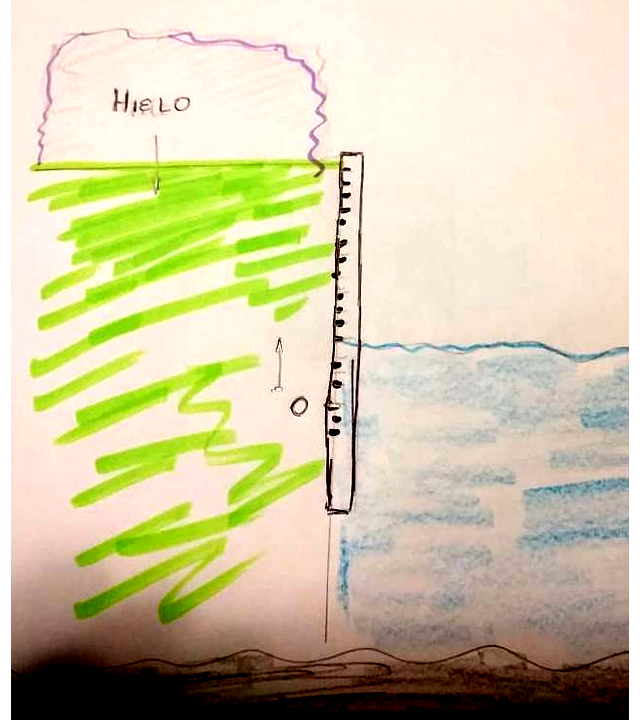 HIELO
O